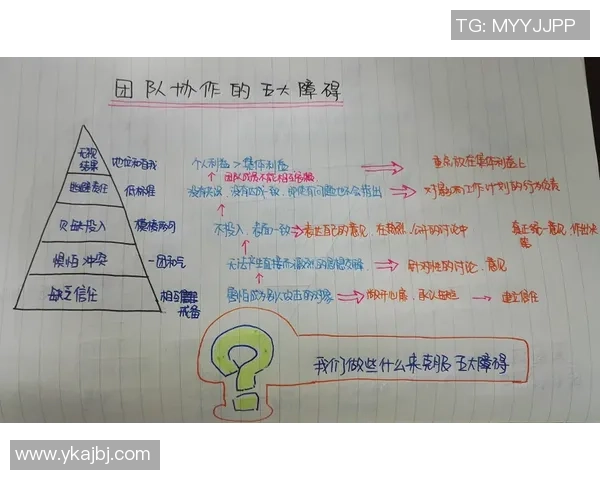 TG: MYYJJPP
团队协作的五大障碍
无视
结果
地位和自我
个人利益>集体利益
重点放在集体利益上
逃避责任
低标准
团队成员不能相互
没有达成一致
对影响工作计划的行为负责
欠缺投入
模棱两可
不投入,表面一致
表达自己的意见,在激烈、公开的讨论中
真正统一意见,作出决策
惧怕冲突
一团和气
无法产生直接而激烈的思想交锋
针对性的讨论、意见
缺乏信任
相互
戒备
害怕成为别人攻击的对象
敞开心扉,承认
建立信任
我们做些什么来克服五大障碍
www.ykajbj.com